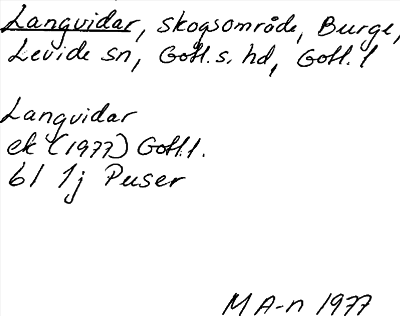 Langvidar, skogsområde, Burge,
Levide sn, Gotl. s. hd, Gotl. l
Langvidar
ek (1977) Gotl. l.
bl 1j Puser
M A-n 1977